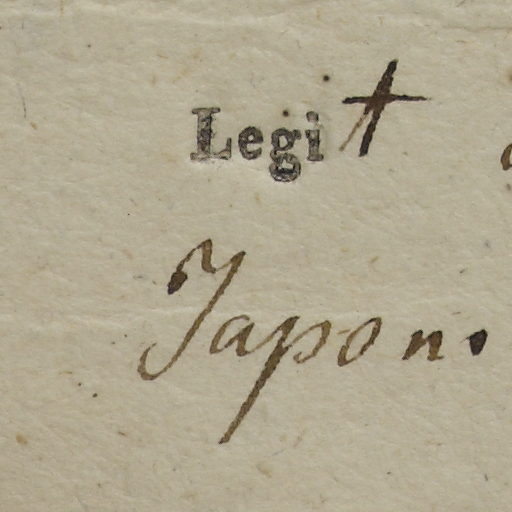 Legit
Japon.